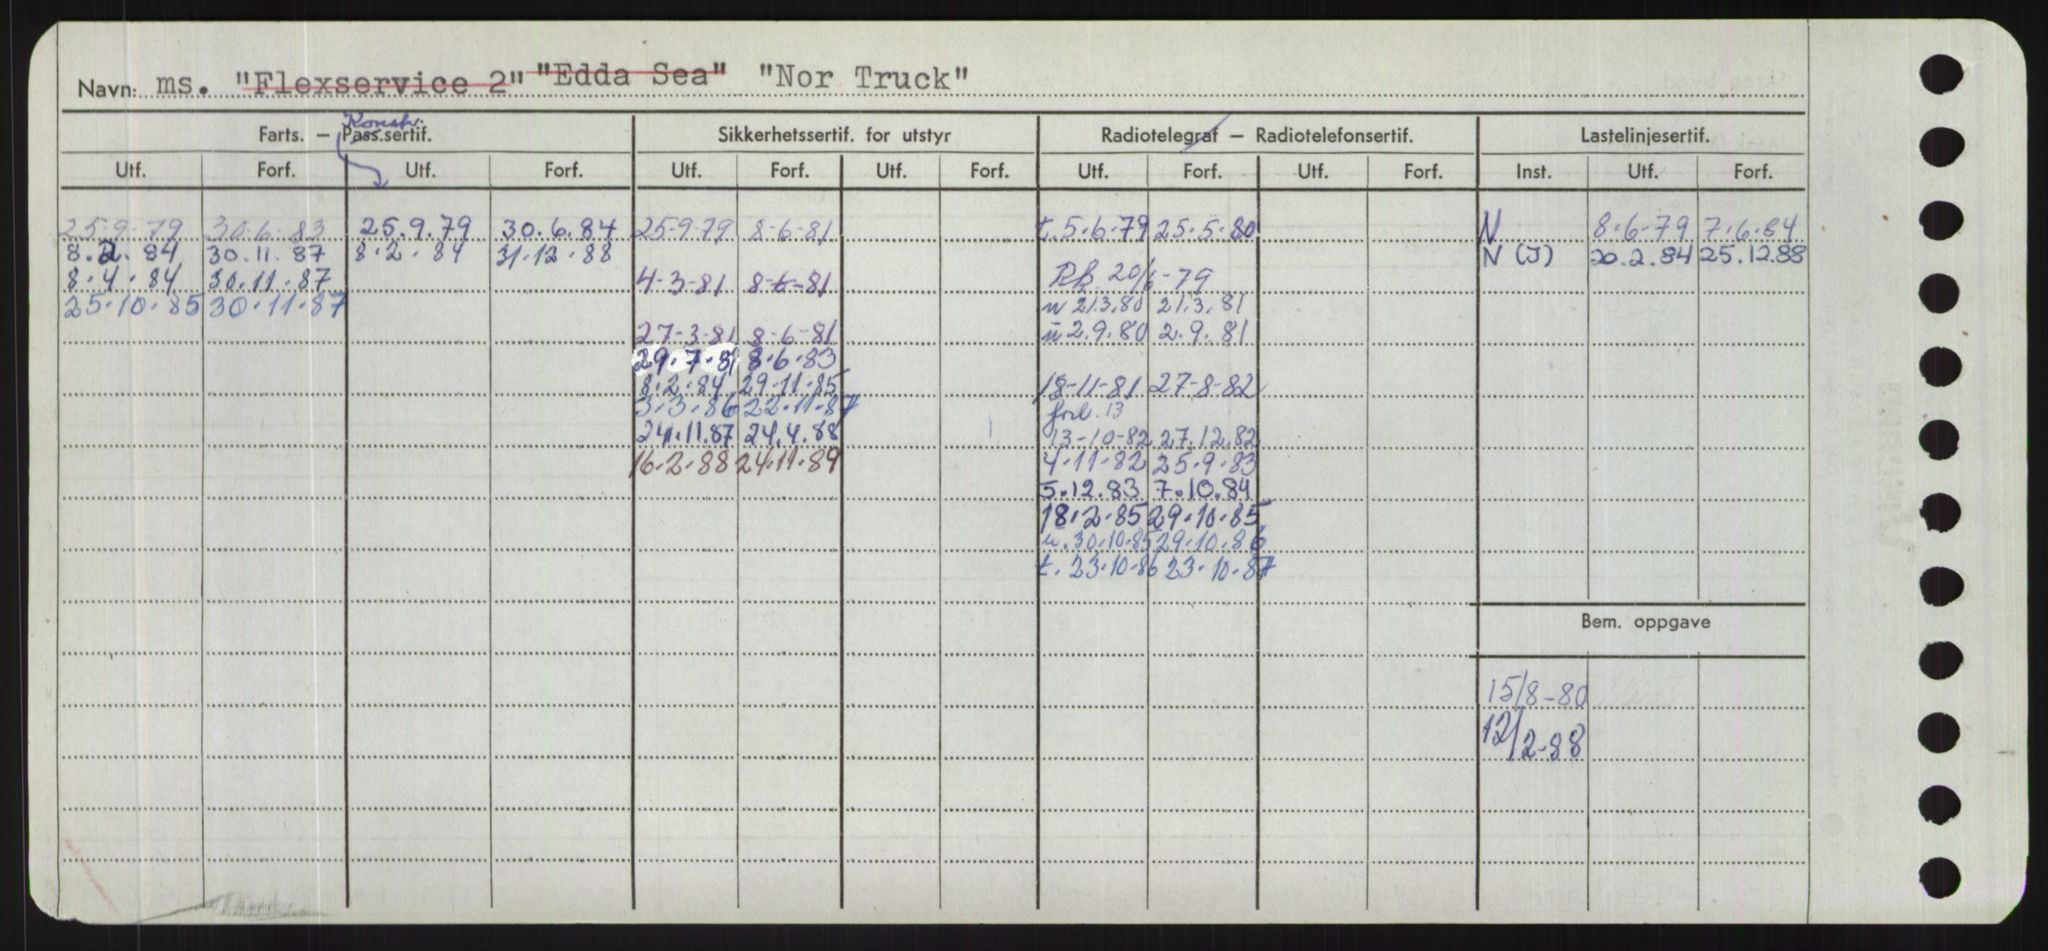 Navn: ms. "Flexservice 2" "Edda Sea" "Nor Truck"
Konstr.
Farts. – Pass.sertif. Sikkerhetssertif. for utstyr Radiotelegraf – Radiotelefonsertif. Lastelinjesertif.
Utf. Forf. Utf. Forf. Utf. Forf. Utf. Forf. Utf. Forf. Utf. Forf. Inst. Utf. Forf.
25-9-79 30-6-83 25.9.79 30.6.84 25-9-79 8-6-81 t. 5-6-79 25-5-80 N 8-6-79 7-6-84
8.2.84 30.11.87 8.2.84 31.12.88 N (J) 20.2.84 25.12.88
8.4.84 30.11.87 4-3-81 8-6-81 20/6-79
25.10.85 30.11.87 21.3.80 21.3.81
27-3-81 8-6-81 2.9.80 2.9.81
29.7.81 8.6.83
8.2.84 29.11.85 18-11-81 27-8-82
3.3.86 22.11.87 forl. 13
24.11.87 24.4.88 13-10-82 27.12.82
16.2.88 24.11.89 4.11.82 25.9.83
5.12.83 7.10.84
18.2.85 29.10.85
30.10.85 29.10.86
t. 23.10.86 23.10.87
Bem. oppgave
15/8-80
12/2-88